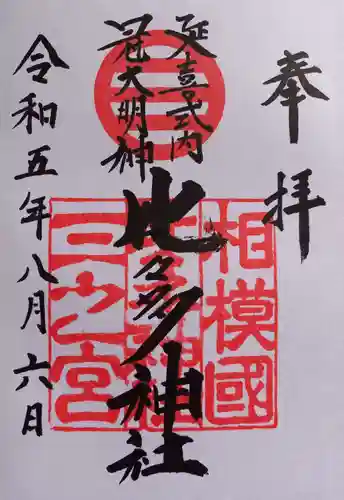 奉拝
延喜式内
冠大明神
比々多神社
令和五年八月六日
相模國
三之宮
比々多神社